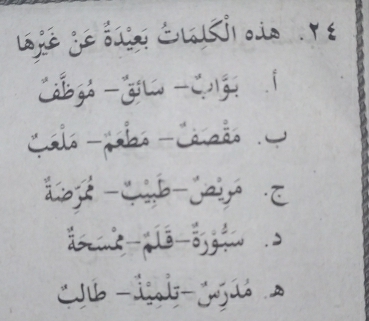 ٢٤. هذه الْكَلِمَاتُ بَعِيْدَةٌ عَنْ غَيْرِهَا
أ. بَوَّابٌ– سَائِقٌ– مُوَظَّفٌ
ب. مَقْصَفٌ– مَطْعَمٌ– مَلْعَبٌ
ج. مَرِيْضٌ–طَبِيْبٌ– مُمَرِّضَةٌ
د. سَبُّوْرَةٌ–قَلَمٌ–مِمْسَحَةٌ
ه. مُدَرِّسٌ–تِلْمِيْذٌ– طَالِبٌ